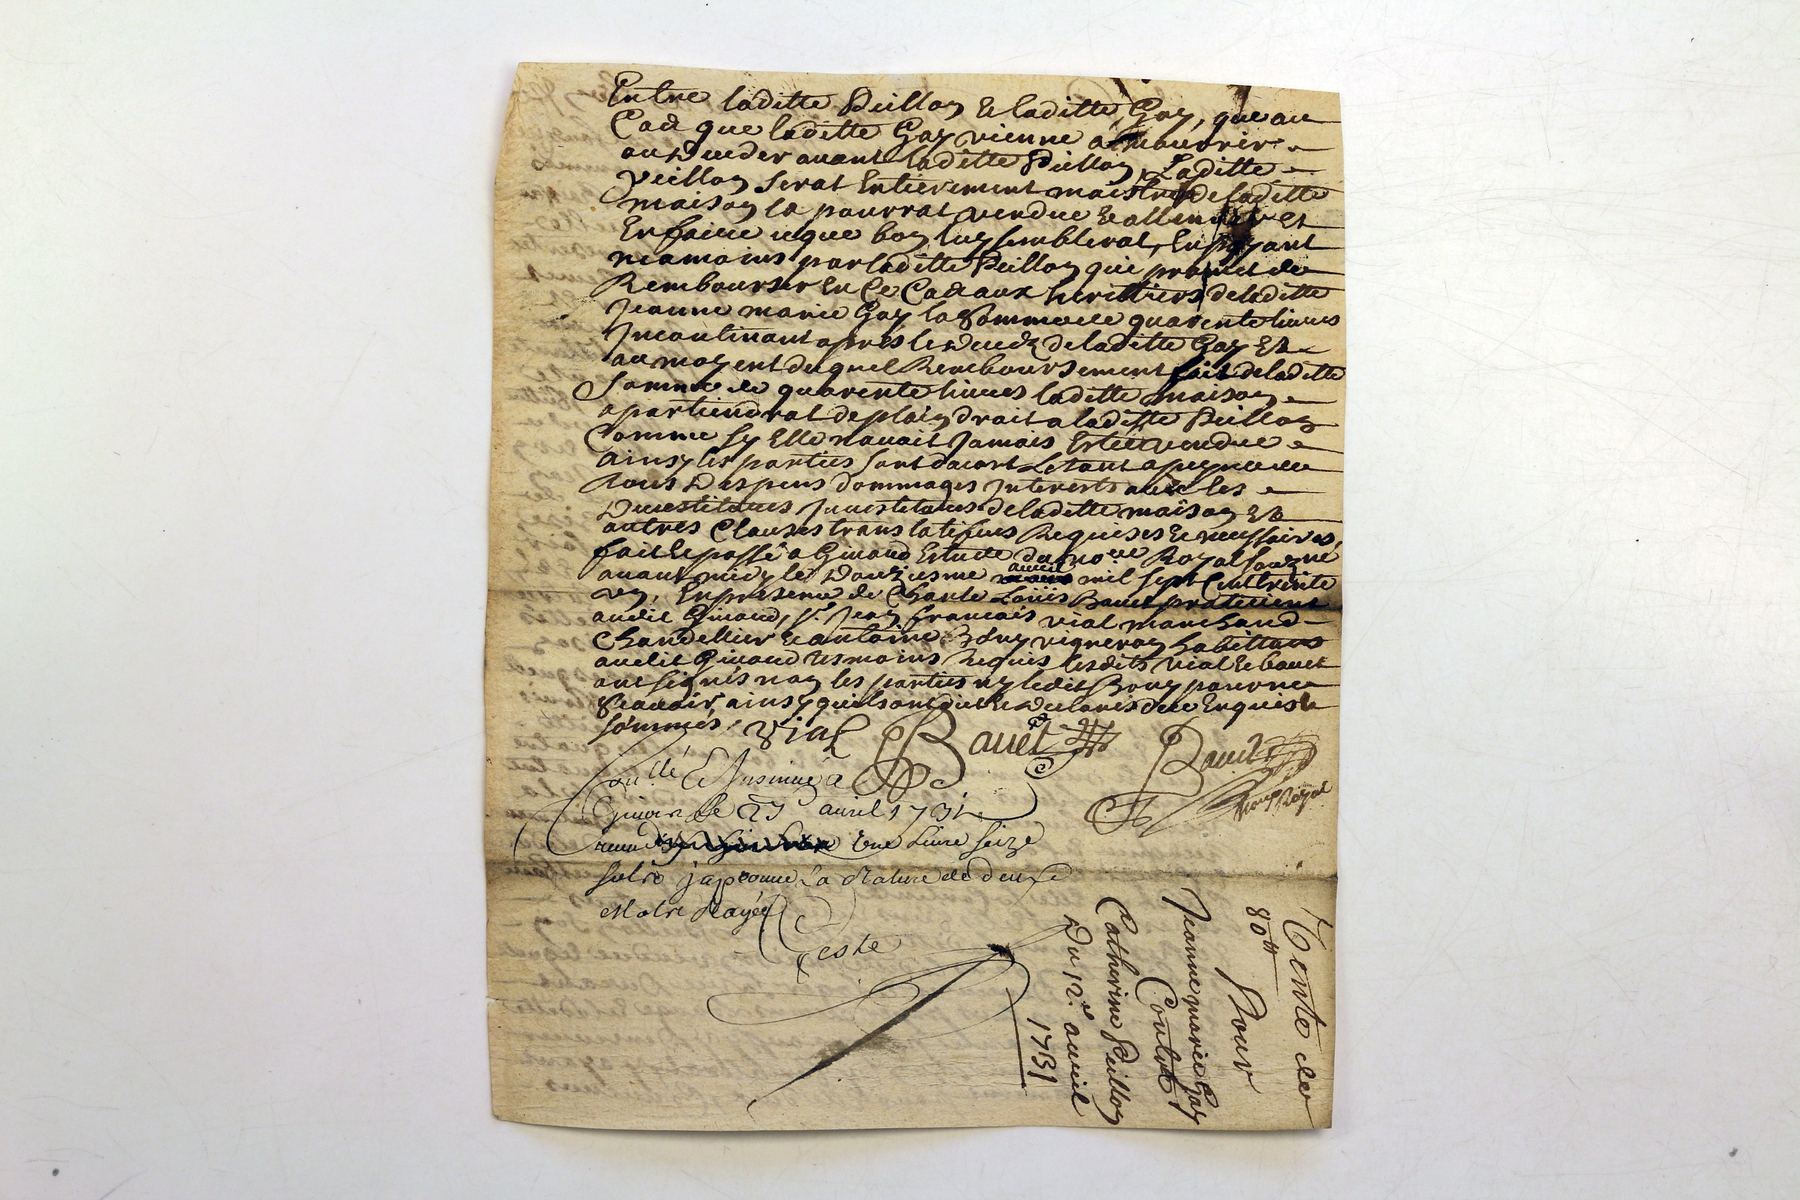 Entre laditte Peillon & laditte Gay, que au
Cas que laditte Gay vienne a mourrir
ou deceder avant laditte Peillon, Laditte
peillon serat Entierement maistresse de laditte
maison la pourrat vendre & alliener Et
En faire ce que bon luy semblerat, En payant
neamoins par laditte Peillon qui promet de
Rembourser En Ce Cas aux herittiers de laditte
Jeanne marie Gay la Somme de quarente livres
Incontinant apres le deceds de laditte Gay Et
au moyent duquel Remboursement fait de laditte
Somme de quarente livres laditte maison
apartiendrat de plain droit a laditte Peillon
Comme sy Elle navait Jamais Estee vendue
ainsy les parties sont dacort Le tout a peyne de
tous despens dommages Interests avec les
devestitures Investitures de laditte maison Et
autres Clauses translatifves Requises & necessaires,
fait & passé a Givord Estude du no.re Royal sougné
avant midy le douziesme avril mil sept Cent trente
un, En presence de Charle Loüis Bavet pratticient
audit Givord, s.r Jean francois vial marchand
Chandellier & antoine Bony vigneron habittans
audit Givord tesmoins Requis lesdits vial & bavet
ont signés non les parties ny ledit Bony pour ne
scavoir, ainsy quils ont dit & declarés de ce Enquis &
sommés. Vial Bavet Bavet
no.re Royal
Con.llé & Insinué a
Givors le 27 avril 1731
reçu une Livre seize
sols
notre Rayée
Teste
Vente de
80 tt
Pour
Jeanne marie Gay
Contre
Catherine Peillon
Du 12.e avril
1731